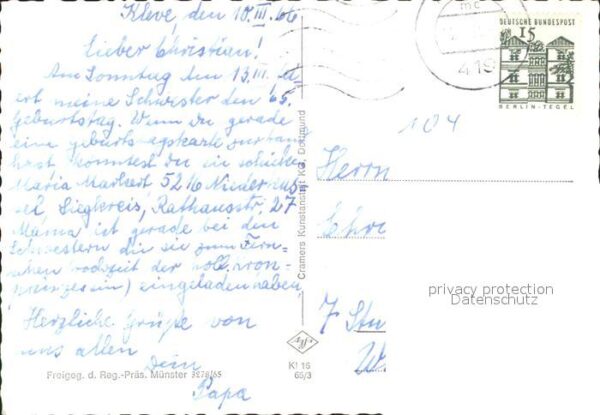 Kleve, den 10.III.66
Lieber Christian!
Am Sonntag den 13.III.
ert meine Schwester den 65.
Geburtstag. Wenn Du gerade
eine Geburtstagskarte zur Hand
hast könntest Du sie schicken
Maria Markert, 5216 Niederkas-
sel Siegkreis, Rathausstr. 27
Mama ist gerade bei den
Schwestern die sie zum Fern-
sehen Hochzeit der holl. Kron-
prinzessin) eingeladen haben
Herzliche Grüße von
uns allen
Dein
Papa
Freigeg. d. Reg.-Präs. Münster 3278/65
Cramers Kunstanstalt KG, Dortmund
Agfa
Kl 15
65/3
419
DEUTSCHE BUNDESPOST
15
BERLIN-TEGEL
104
Herrn
Chri
7 Stu
W.
privacy protection
Datenschutz